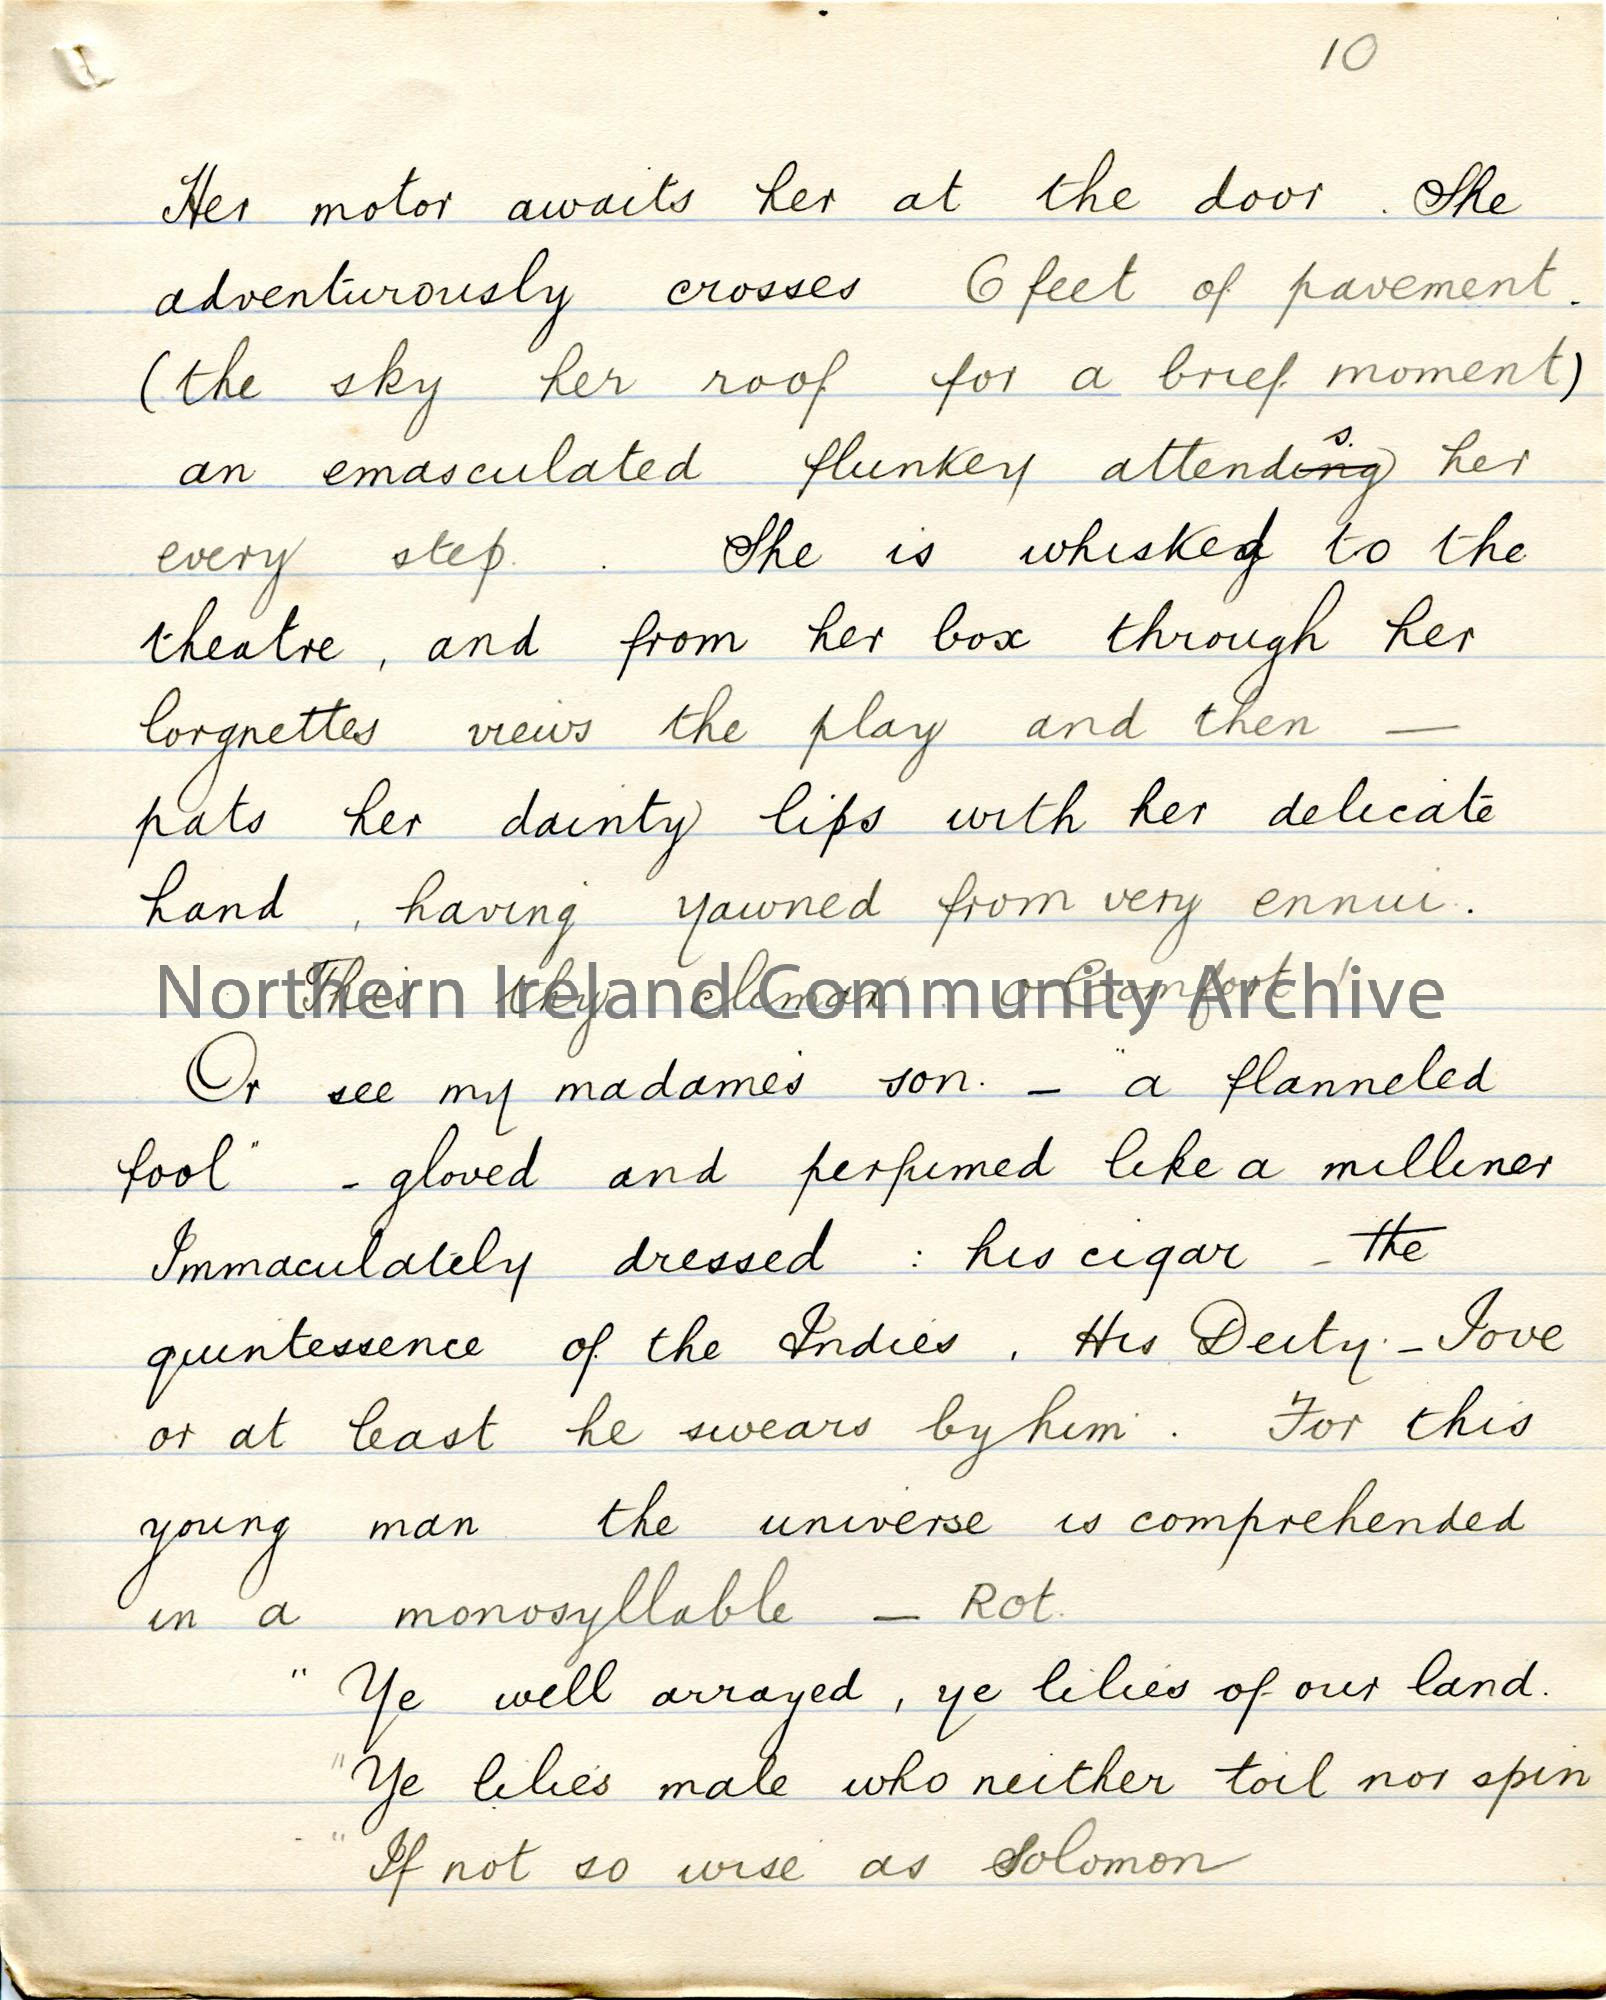 10
Her motor awaits her at the door. She
adventurously crosses 6 feet of pavement.
(the sky her roof for a brief moment)
an emasculated flunkey attending s. her
every step. She is whisked to the
theatre, and from her box through her
lorgnettes views the play and then —
pats her dainty lips with her delicate
hand, having yawned from very ennui.
This thy climax O Comfort!
Northern Ireland Community Archive
Or see my madame's son. - "a flanneled
fool" - gloved and perfumed like a milliner
Immaculately dressed : his cigar - the
quintessence of the Indies. His Deity - Jove
or at least he swears by him. For this
young man the universe is comprehended
in a monosyllable — Rot.
" Ye well arrayed, ye lilies of our land.
"Ye lilies male who neither toil nor spin
" If not so wise as Solomon